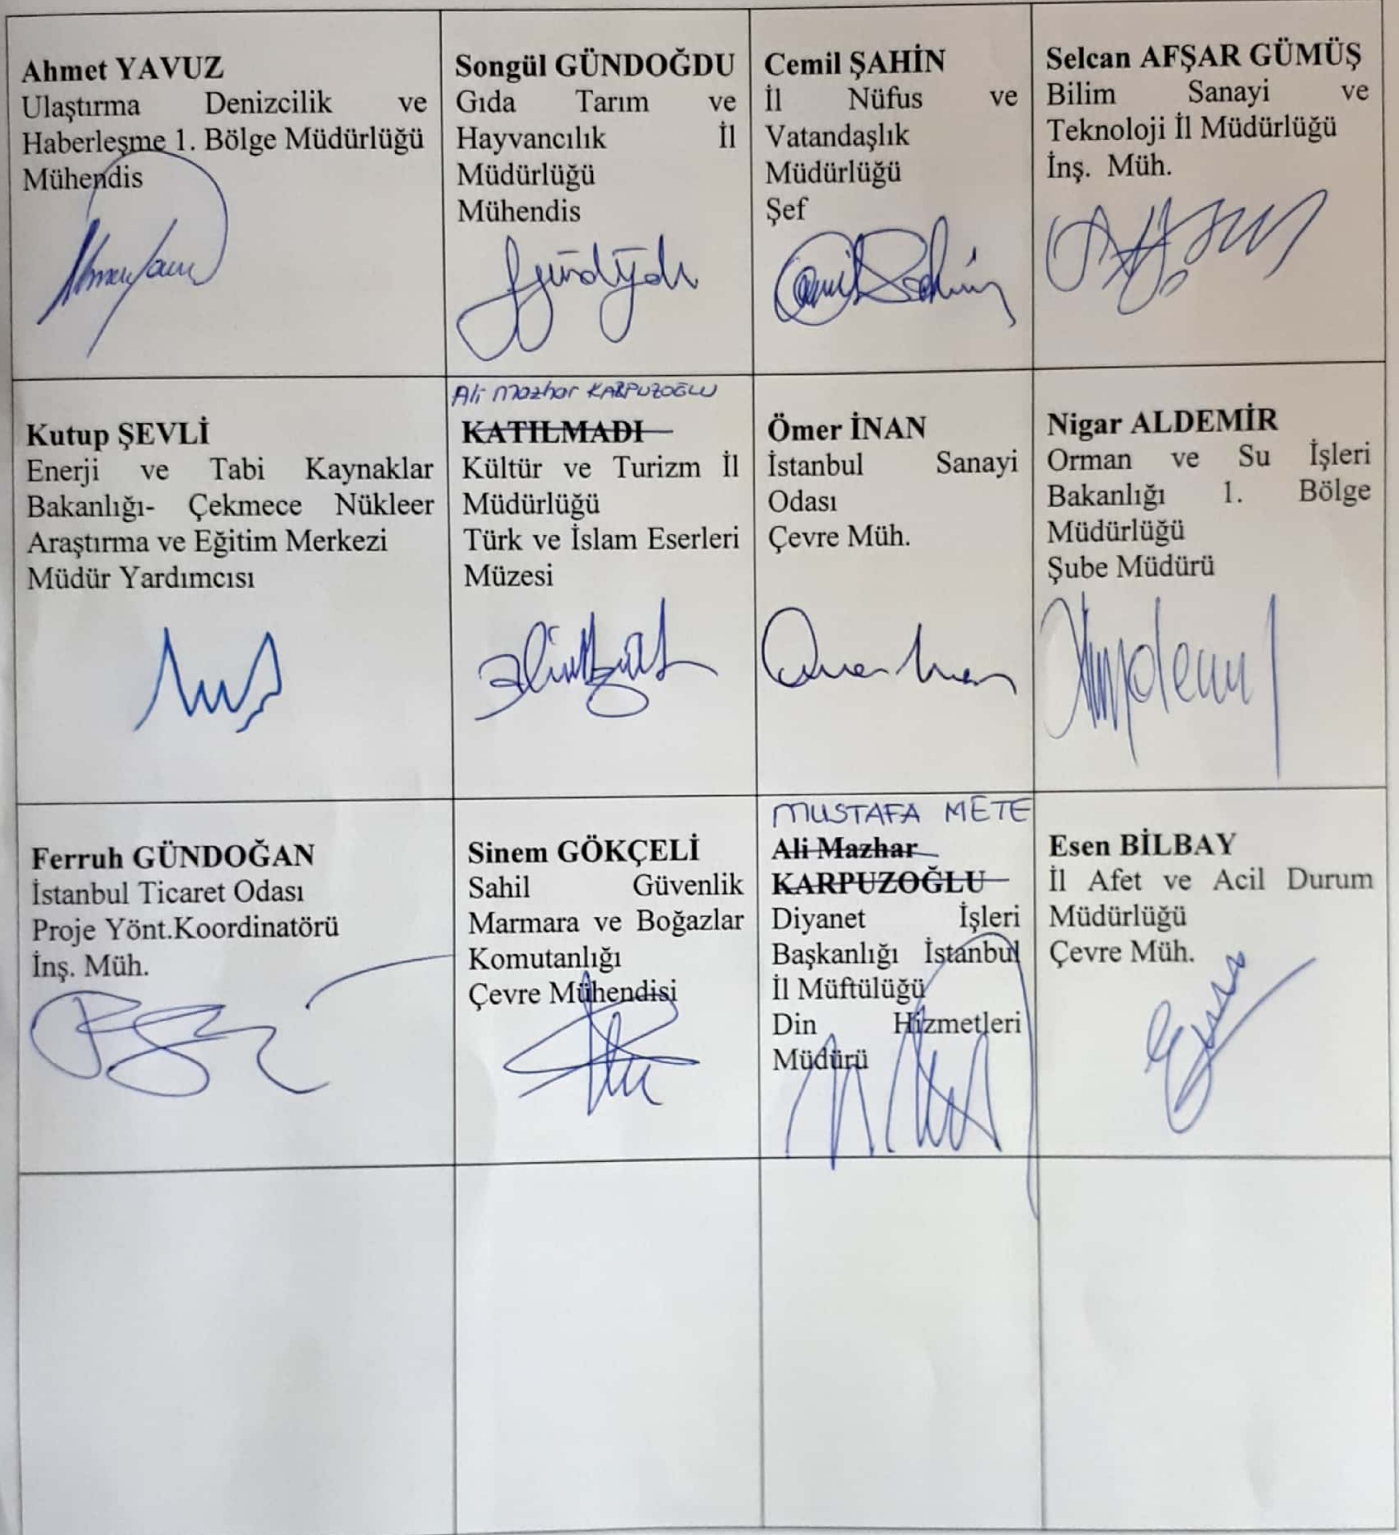 Ahmet YAVUZ
Ulaştırma Denizcilik ve
Haberleşme 1. Bölge Müdürlüğü
Mühendis
Songül GÜNDOĞDU
Gıda Tarım ve
Hayvancılık İl
Müdürlüğü
Mühendis
Cemil ŞAHİN
İl Nüfus ve
Vatandaşlık
Müdürlüğü
Şef
Cemil Şahin
Selcan AFŞAR GÜMÜŞ
Bilim Sanayi ve
Teknoloji İl Müdürlüğü
İnş. Müh.
Kutup ŞEVLİ
Enerji ve Tabi Kaynaklar
Bakanlığı- Çekmece Nükleer
Araştırma ve Eğitim Merkezi
Müdür Yardımcısı
Ali Mazhar KARPUZOĞLU
KATILMADI
Kültür ve Turizm İl
Müdürlüğü
Türk ve İslam Eserleri
Müzesi
Ömer İNAN
İstanbul Sanayi
Odası
Çevre Müh.
Nigar ALDEMİR
Orman ve Su İşleri
Bakanlığı 1. Bölge
Müdürlüğü
Şube Müdürü
Ferruh GÜNDOĞAN
İstanbul Ticaret Odası
Proje Yönt.Koordinatörü
İnş. Müh.
Sinem GÖKÇELİ
Sahil Güvenlik
Marmara ve Boğazlar
Komutanlığı
Çevre Mühendisi
MUSTAFA METE
Ali Mazhar
KARPUZOĞLU
Diyanet İşleri
Başkanlığı İstanbul
İl Müftülüğü
Din Hizmetleri
Müdürü
Esen BİLBAY
İl Afet ve Acil Durum
Müdürlüğü
Çevre Müh.